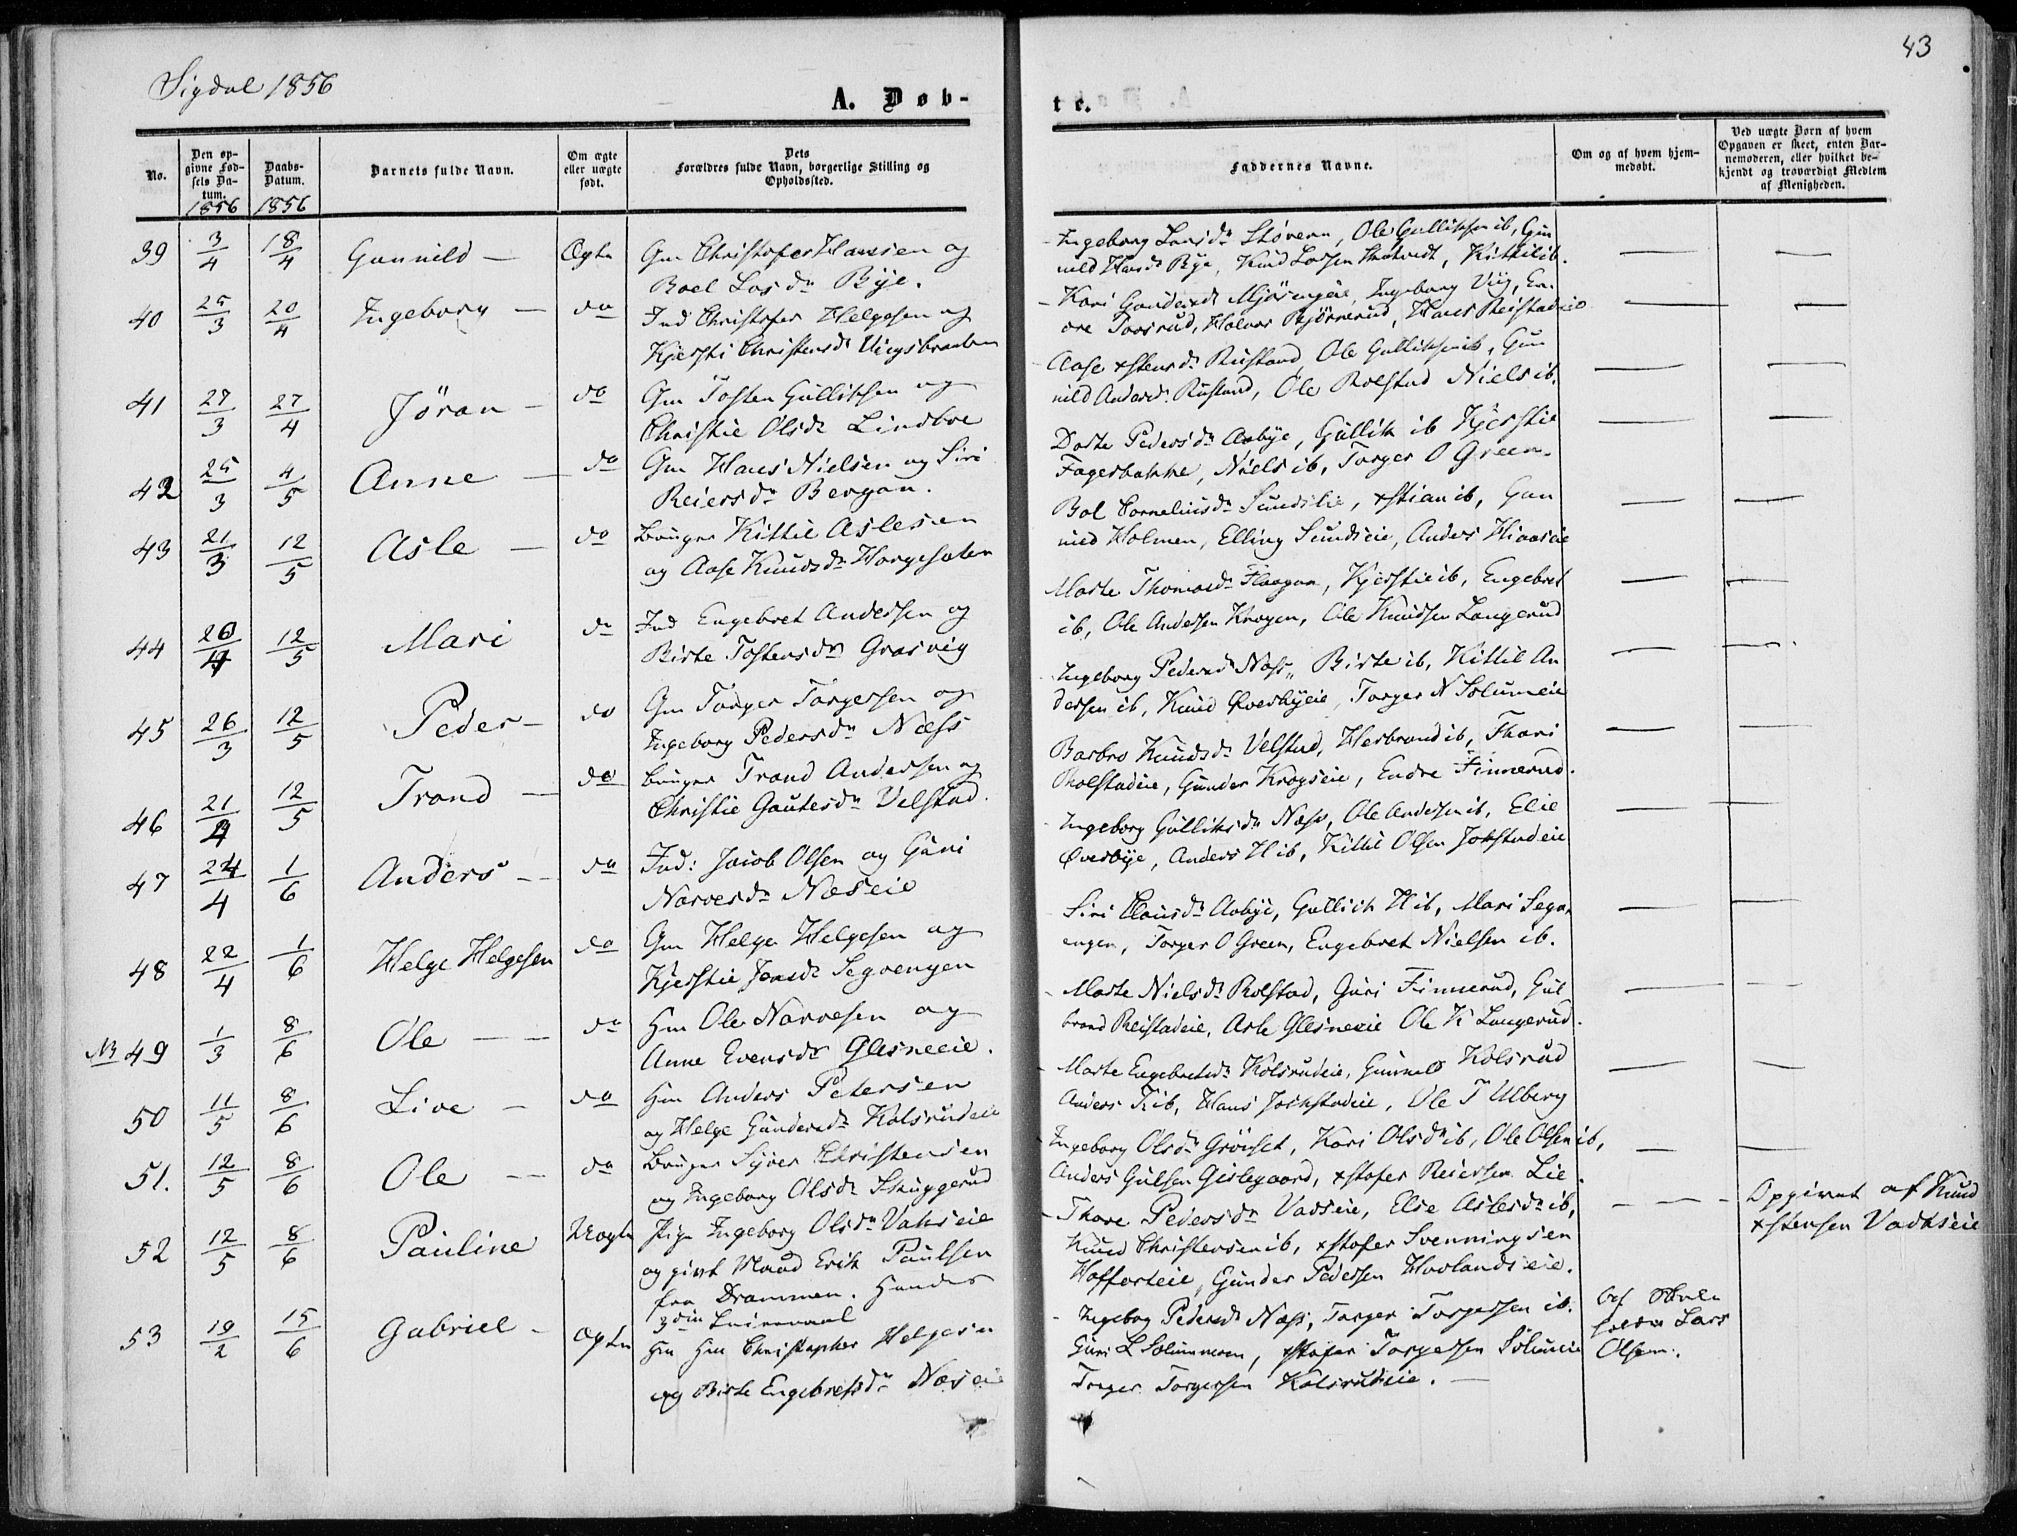 43
Sigdal 1856
A. Døb-
te.
No.
Den op-
givne Fød-
sels Da-
tum.
1856
Daabs-
Datum.
1856
Barnets fulde Navn.
Om ægte
eller uægte
født.
Dets
Forældres fulde Navn, borgerlige Stilling og
Opholdssted.
Faddernes Navne.
Om og af hvem hjem-
medøbt.
Ved uægte Børn af hvem
Opgaven er skeet, enten Bar-
nemoderen, eller hvilket be-
kjendt og troværdigt Medlem
af Menigheden.
39 3/4 18/4 Gunnild — Ægte Gm Christofer Hansen og
Boel Larsdr Bye.
Ingeborg Larsdr Støveren, Ole Gulliksen ib, Gun
nild Hansdr Bye, Knud Larsen, Kittil ib.
40 25/3 20/4 Ingeborg — do Ind Christofer Helgesen og
Kjersti Christensdr Viigsbraaten
Kari Gundersdr, Ingeborg Viig, En-
are Torsrud, Halvor Bjørnerud, Hans Reistadeie
41 27/3 27/4 Jøran — do Gm Tosten Gulliksen og
Christie Olsdr Lindboe
Aase Xstensdr Rustand, Ole Gulliksen ib, Gun
nild Andersdr Rustand, Ole Rolstad Niels ib.
42 25/3 4/5 Anne — do Gm Hans Nielsen og Siri
Reiersdr Bergan.
Dorte Pedersdr Aabye, Gullik ib Kjerstie
Fagerbakke, Niels ib, Torger O Green.
43 21/3 12/5 Asle — do Bruger Kittil Aslesen
og Aase Knudsdr Horgesæter
Bol Corneliusdr Sundslie, Xstian ib, Gun
nild Holmen, Elling Sundseie, Anders Hiaaseie
44 20/4 12/5 Mari do Ind Engebret Andersen og
Birte Tostensdr Grasvig
Marte Thomasdr Haagan, Kjerstie ib, Engebret
ib, Ole Andersen Kragen, Ole Knudsen Langerud
45 26/3 12/5 Peder — do Gm Torger Torgersen og
Ingeborg Pedersdr Næss
Ingeborg Pedersdr Næss, Birte ib, Kittil An
dersen ib, Knud Øverbyeie, Torger N Solumeie
46 21/4 12/5 Trond — do Bruger Trond Andersen og
Christie Gautesdr Velstad.
Barbro Knudsdr Velstad, Herbrand ib, Thori
Rolstadeie, Gunder Kragseie, Endre Finnerud.
47 24/4 1/6 Anders — do Ind: Jacob Olsen og Guri
Narvesdr Næseie
Ingeborg Gulliksdr Næss, Ole Andersen ib, Elie
Øverbye, Anders H ib, Kittil Olsen Jokstadeie
48 22/4 1/6 Helge Helgesen do Gm Helge Helgesen og
Kjerstie Jensdr Segoengen
Siri Clausdr Aabye, Gullick H ib, Mari Sego-
engen, Torger O Green, Engebret Nielsen ib.
49 1/3 8/6 Ole — — do Hm Ole Narvesen og
Anne Evensdr Glesneeie.
Marte Nielsdr Rolstad, Guri Finnerud, Gul
brand Reistadeie, Asle Glesneeie Ole K Langerud.
50 11/5 8/6 Live — do Hm Anders Petersen
og Helge Gundersdr Kolsrudeie
Marte Engebretsdr Kolsrudeie, Gunnild Kolsrud
Anders T ib, Hans Jockstadeie, Ole T Ulberg
51. 12/5 8/6 Ole — do Bruger Syver Christensen
og Ingeborg Olsdr Skuggerud
Ingeborg Olsdr Grøvset, Kari Olsdr ib, Ole Olsen ib,
Anders Gulsen Gislegaard, Xstofer Reiersen Lie.
52 12/5 8/6 Pauline Uægte Pige Ingeborg Olsdr Vatnseie
og givt Mand Erik Paulsen
fra Drammen. Hendes
3die Leiermaal
Thore Pedersdr Vadseie, Elie Aslesdr ib,
Knud Christensen ib, Xstofer Svenningsen
Hofforteie, Gunder Pedersen Hovlandseie.
Opgivet af Knud
Xstensen Vadkseie
53 19/2 15/6 Gabriel — Ægte Hm Christopher Helgesen
og Birte Engebretsdr Næseie
Ingeborg Pedersdr Næss, Torger Torgersen ib.
Guri L Solummoen, Xstofer Torgersen Solumeie
Torger Torgersen Kolsrudeie. —
af Skole
holder Lars
Olsen.